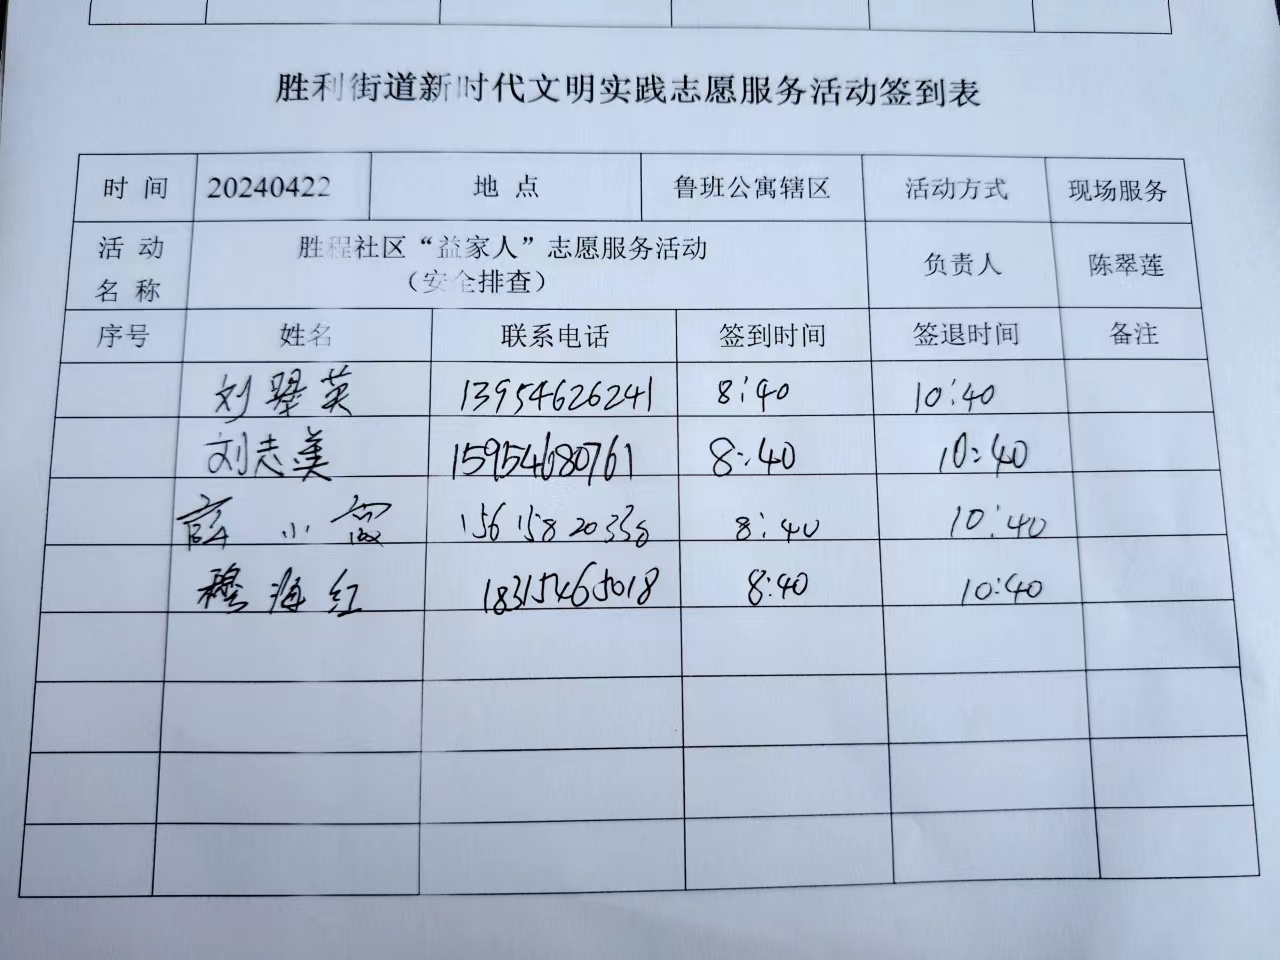 胜利街道新时代文明实践志愿服务活动签到表
时 间 20240422 地 点 鲁班公寓辖区 活动方式 现场服务
活 动 名 称 胜程社区“益家人”志愿服务活动 （安全排查） 负责人 陈翠莲
序号 姓名 联系电话 签到时间 签退时间 备注
刘翠英 13954626241 8:40 10:40
刘志美 15954680761 8:40 10:40
薛小 15615820338 8:40 10:40
穆海红 18315465018 8:40 10:40